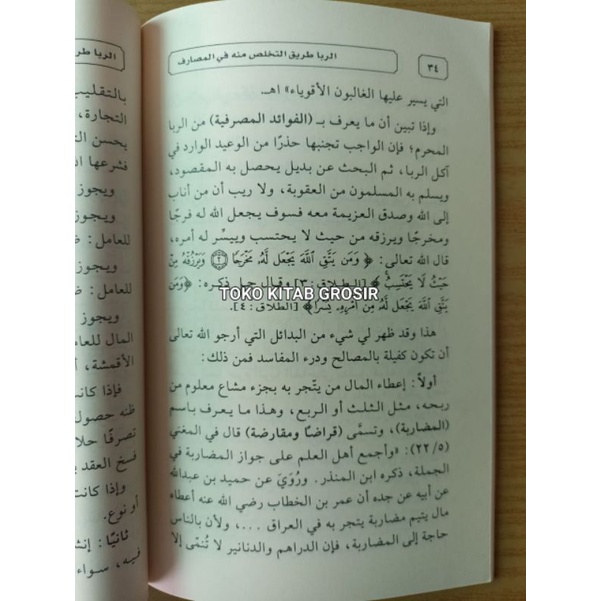 ٣٤
الربا طريق التخلص منه في المصارف
التي يسير عليها الغالبون الأقوياء» اهـ.
وإذا تبين أن ما يعرف بـ (الفوائد المصرفية) من الربا
المحرم؛ فإن الواجب تجنبها حذرًا من الوعيد الوارد في
آكل الربا، ثم البحث عن بديل يحصل به المقصود،
ويسلم به المسلمون من العقوبة، ولا ريب أن من أناب
إلى الله وصدق العزيمة معه فسوف يجعل الله له فرجًا
ومخرجًا ويرزقه من حيث لا يحتسب وييسّر له أمره،
قال الله تعالى: ﴿وَمَن يَتَّقِ ٱللَّهَ يَجْعَل لَّهُۥ مَخْرَجًا ۝٢ وَيَرْزُقْهُ مِنْ
حَيْثُ لَا يَحْتَسِبُ﴾ [الطلاق: ٣] وقال جل ذكره: ﴿وَمَن
TOKO KITAB GROSIR
يَتَّقِ ٱللَّهَ يَجْعَل لَّهُۥ مِنْ أَمْرِهِۦ يُسْرًا﴾ [الطلاق: ٤].
هذا وقد ظهر لي شيء من البدائل التي أرجو الله تعالى
أن تكون كفيلة بالمصالح ودرء المفاسد فمن ذلك:
أولاً: إعطاء المال من يتّجر به بجزء مشاع معلوم من
ربحه، مثل الثلث أو الربع، وهذا ما يعرف باسم
(المضاربة)، وتسمَّى (قراضًا ومقارضة) قال في المغني
(٥/٢٢): «وأجمع أهل العلم على جواز المضاربة في
الجملة، ذكره ابن المنذر. ورُوِيَ عن حميد بن عبدالله
عن أبيه عن جده أن عمر بن الخطاب رضي الله عنه أعطاه
مال يتيم مضاربة يتجر به في العراق ...، ولأن بالناس
حاجة إلى المضاربة، فإن الدراهم والدنانير لا تُنمّى إلا
الربا طر
بالتقليب
التجارة،
يحسن الت
فشرعها ال
ويجوز
ويجوز
للعامل:
ويجوز
للعامل: ض
ويجوز
المال للعام
الأقمشة،
فإذا كانت
ظنه حصول
تصرفًا حلا
فسخ العقد ب
وإذا كانت
أو نوع.
ثانيًا: إنش
فيه، سواء